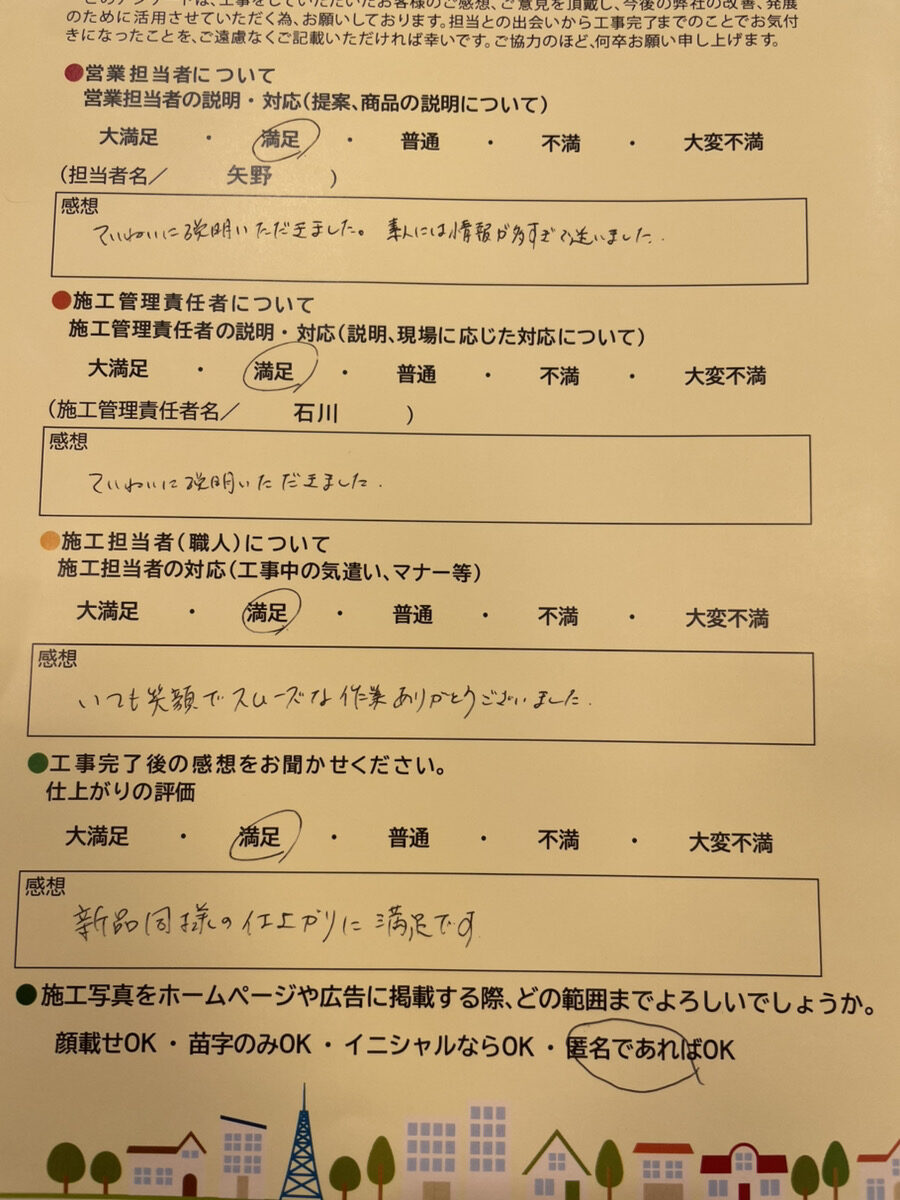 このアンケートは、工事をしていただいたお客様のご感想、ご意見を頂戴し、今後の弊社の改善、発展
のために活用させていただく為、お願いしております。担当との出会いから工事完了までのことでお気付
きになったことを、ご遠慮なくご記載いただければ幸いです。ご協力のほど、何卒お願い申し上げます。
●営業担当者について
営業担当者の説明・対応(提案、商品の説明について)
大満足 ・ 満足 ・ 普通 ・ 不満 ・ 大変不満
(担当者名/ 矢野 )
感想
ていねいに説明いただきました。素人には情報が多すぎて迷いました.
●施工管理責任者について
施工管理責任者の説明・対応(説明、現場に応じた対応について)
大満足 ・ 満足 ・ 普通 ・ 不満 ・ 大変不満
(施工管理責任者名/ 石川 )
感想
ていねいに説明いただきました.
●施工担当者(職人)について
施工担当者の対応(工事中の気遣い、マナー等)
大満足 ・ 満足 ・ 普通 ・ 不満 ・ 大変不満
感想
いつも笑顔でスムーズな作業ありがとうございました.
●工事完了後の感想をお聞かせください。
仕上がりの評価
大満足 ・ 満足 ・ 普通 ・ 不満 ・ 大変不満
感想
新品同様の仕上がりに満足です
●施工写真をホームページや広告に掲載する際、どの範囲までよろしいでしょうか。
顔載せOK ・ 苗字のみOK ・ イニシャルならOK ・ 匿名であればOK